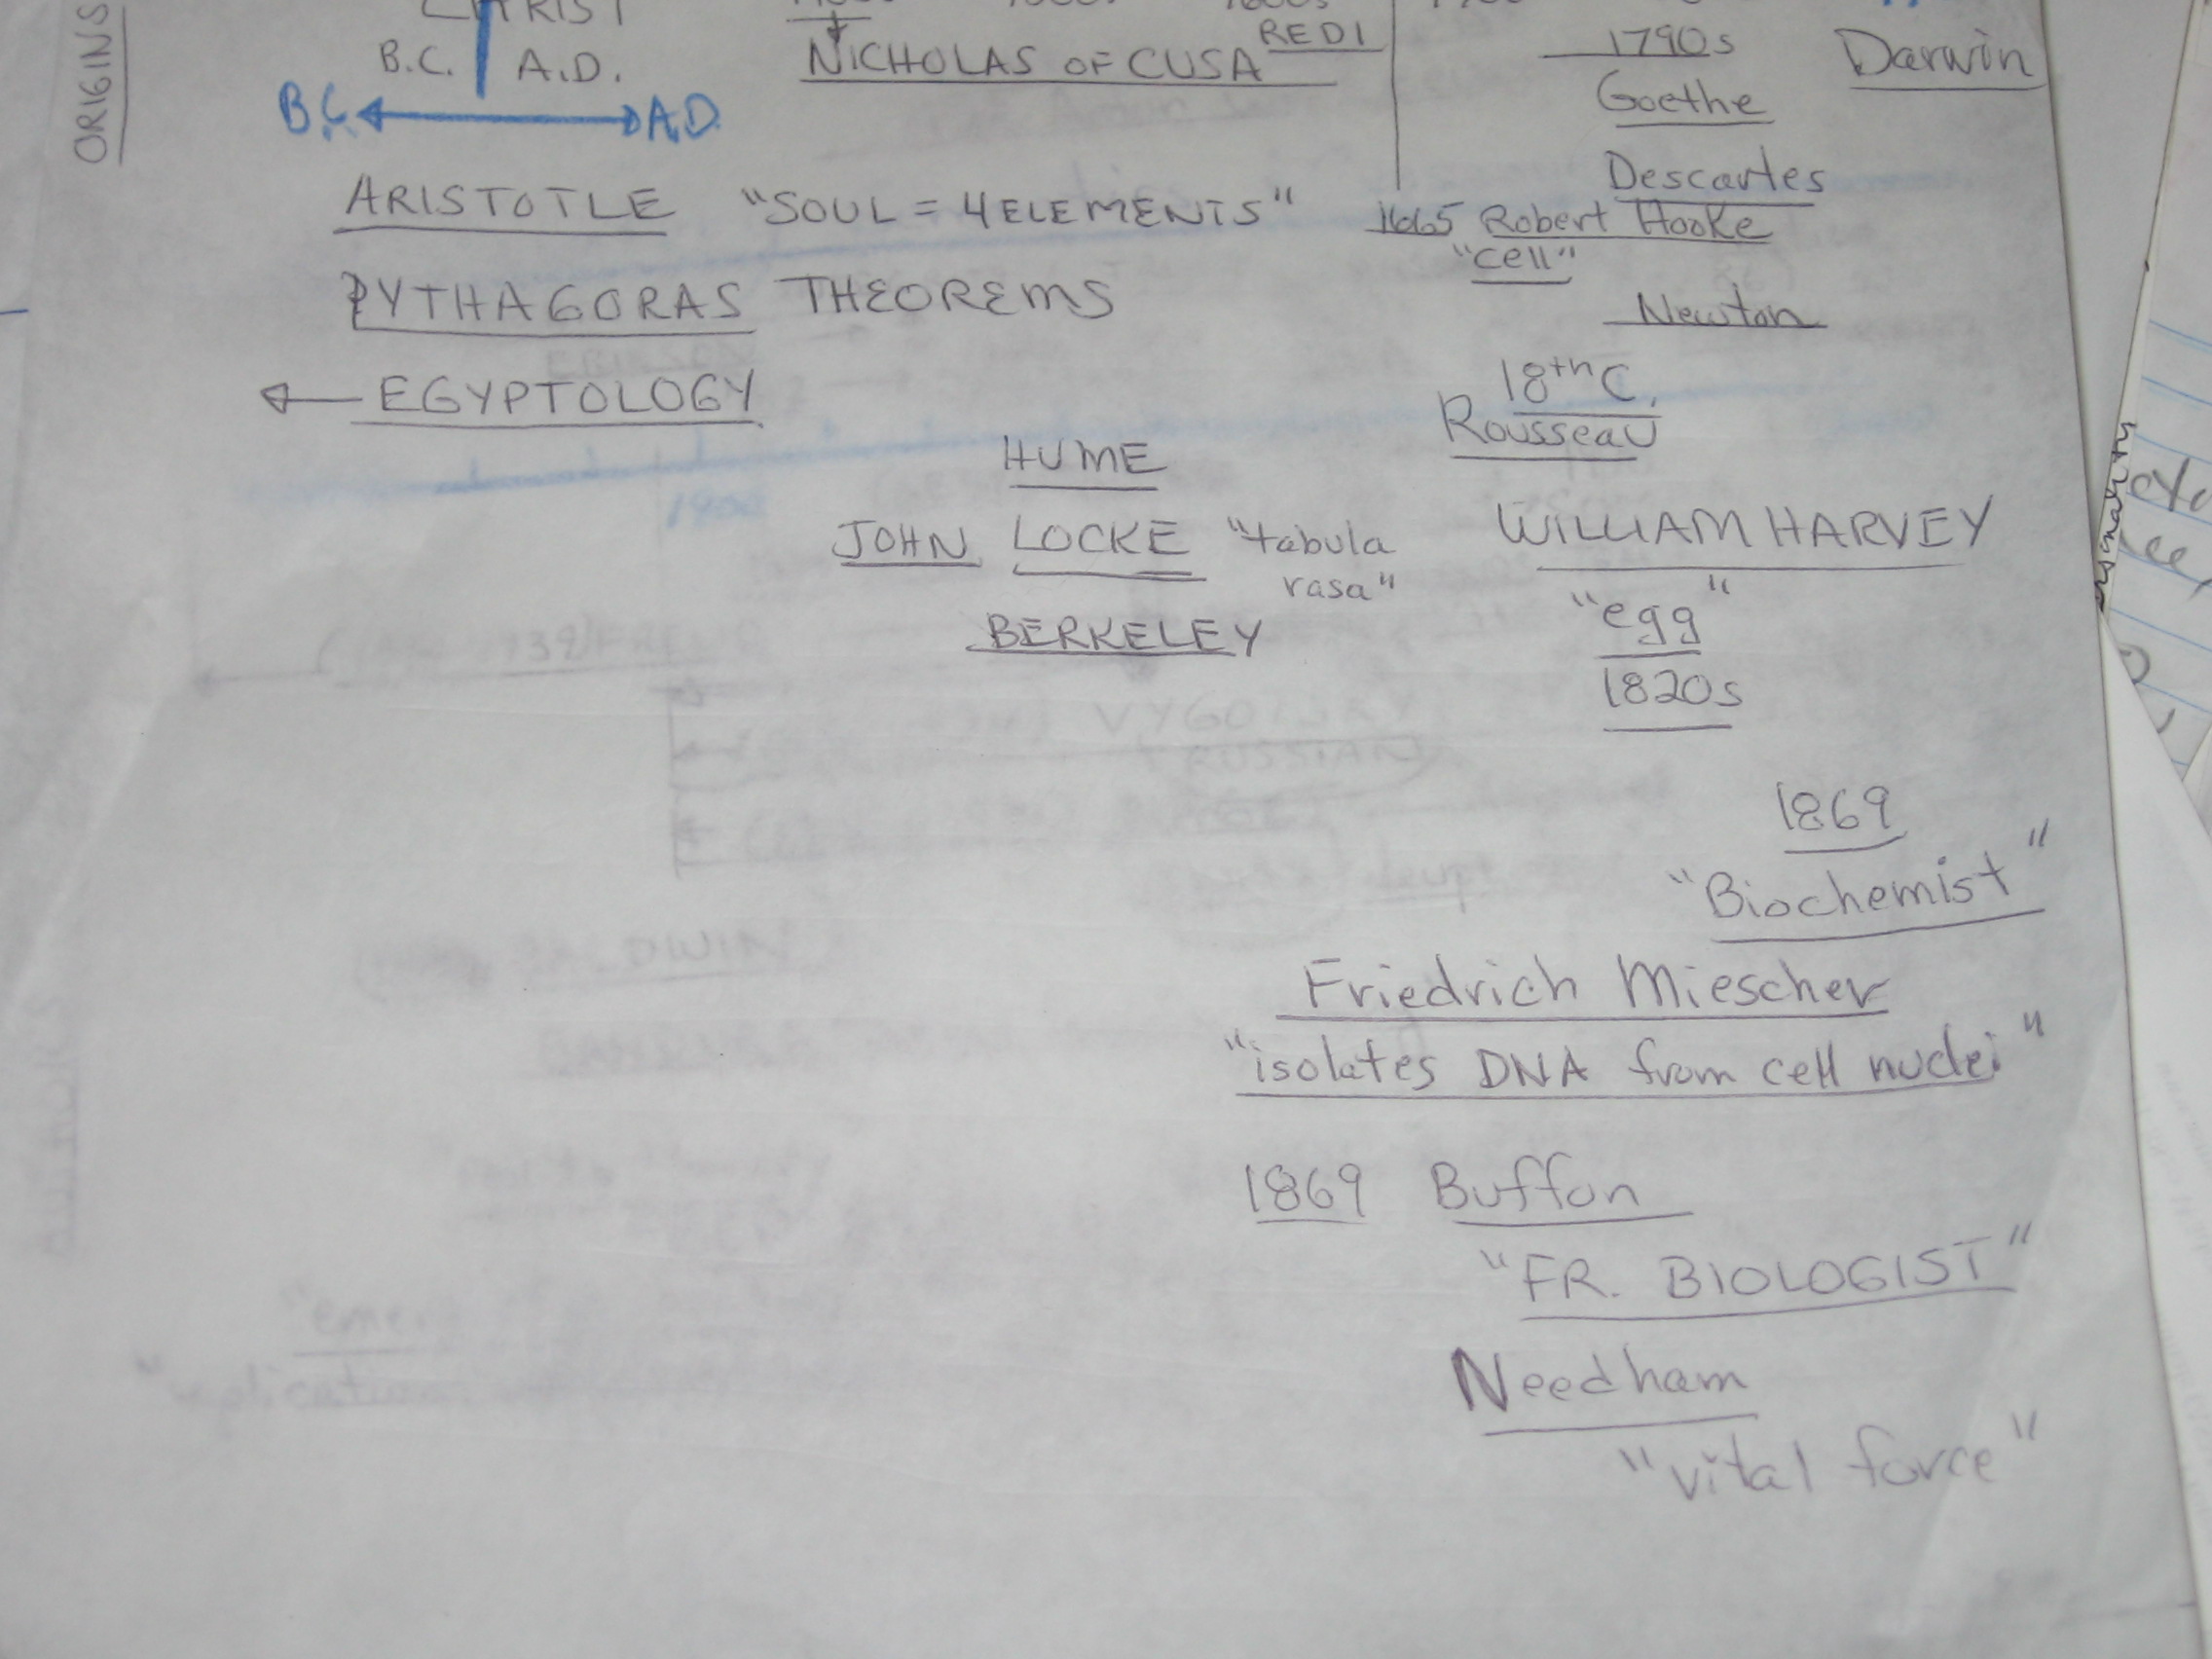 ORIGINS
CHRIST
B.C. A.D.
B.C. A.D.
REDI
NICHOLAS OF CUSA
1790s
Darwin
Goethe
ARISTOTLE "SOUL = 4 ELEMENTS"
Descartes
1665 Robert Hooke
"cell"
PYTHAGORAS THEOREMS
Newton
EGYPTOLOGY
18th C.
Rousseau
HUME
JOHN LOCKE "tabula
rasa"
BERKELEY
WILLIAM HARVEY
"egg"
1820s
1869
"Biochemist"
Friedrich Miescher
"isolates DNA from cell nuclei"
1869 Buffon
"FR. BIOLOGIST"
Needham
"vital force"